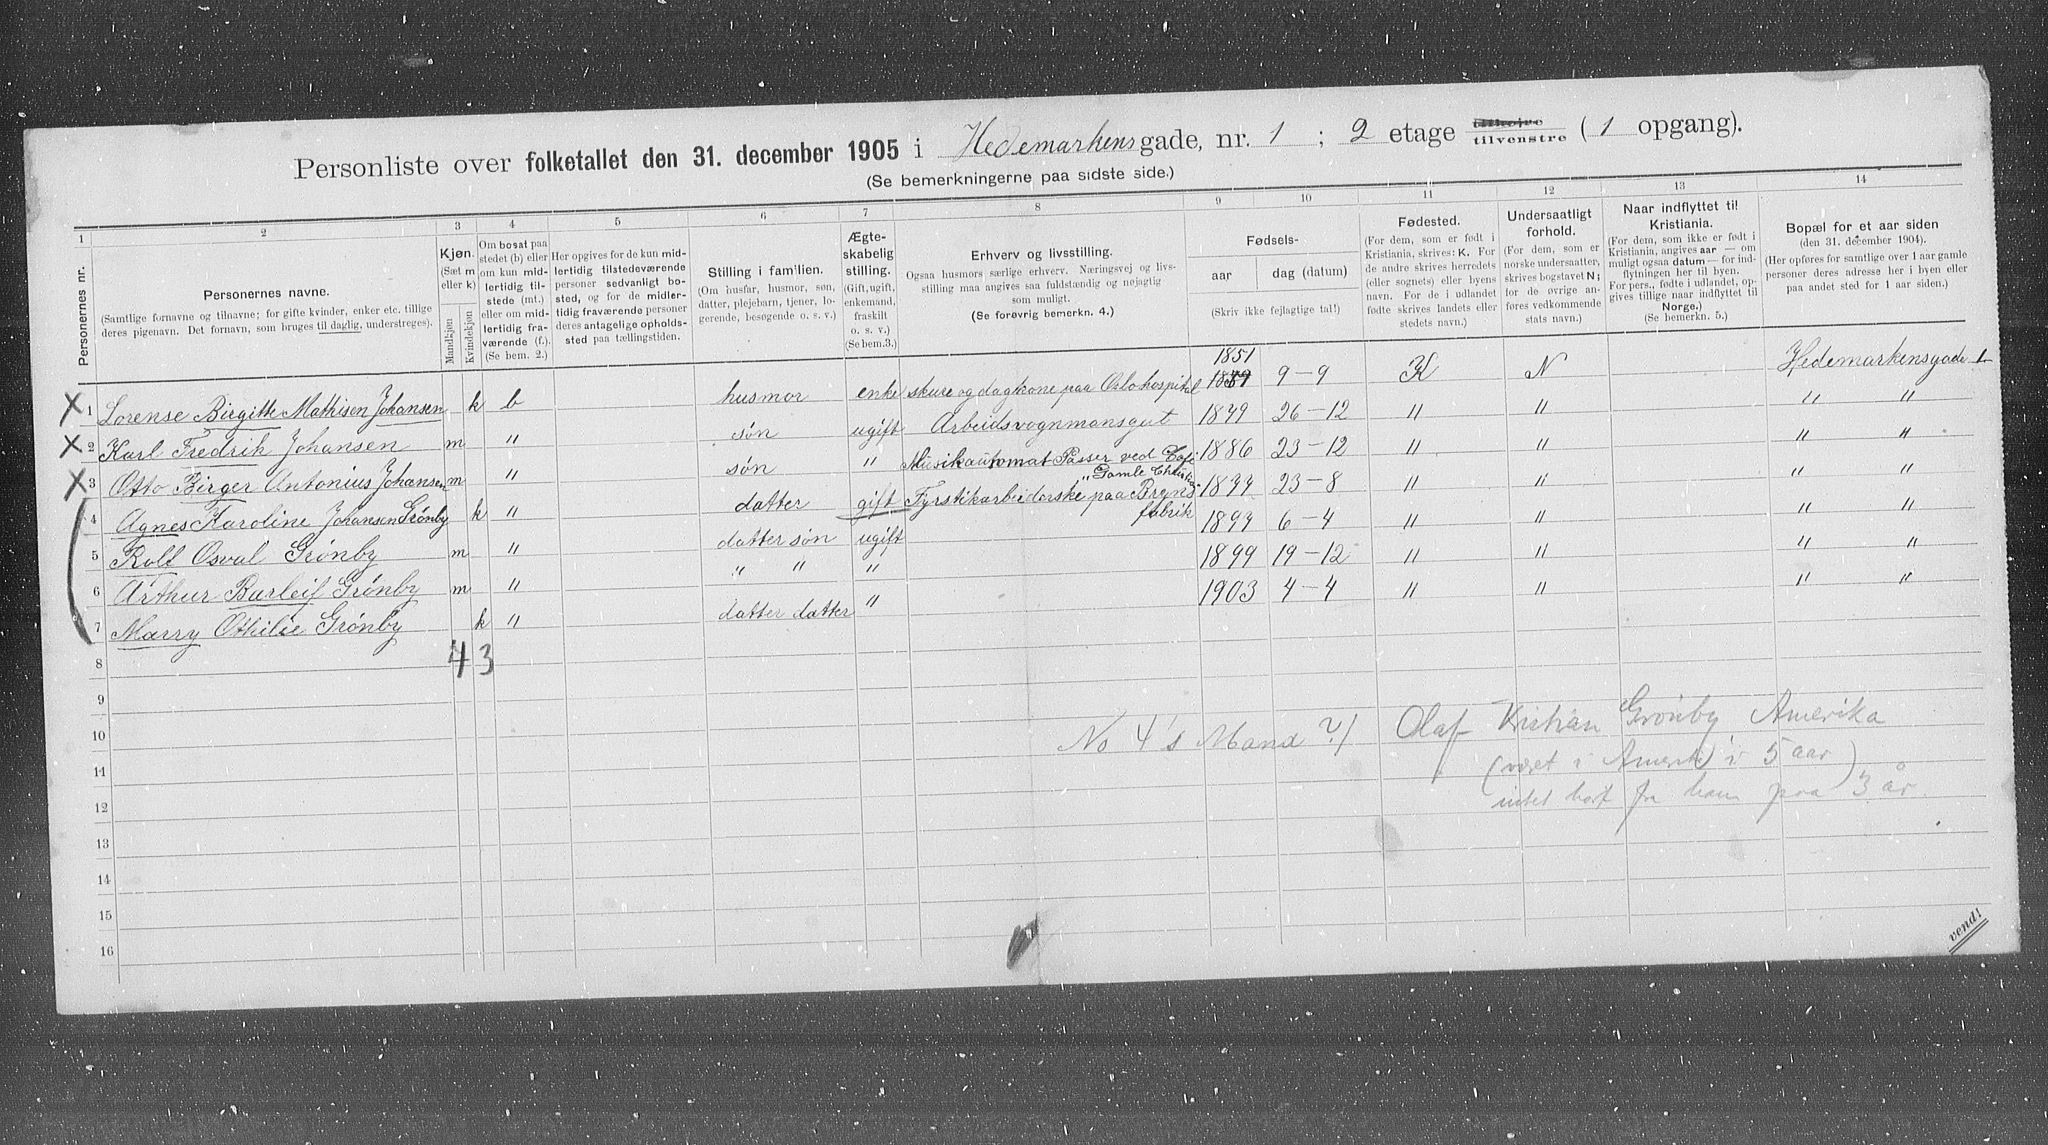 Personliste over folketallet den 31. december 1905 i Hedemarkensgade, nr. 1 ; 2 etage tilhøjre tilvenstre ( 1 opgang).
(Se bemerkningerne paa sidste side.)
1 2 3 4 5 6 7 8 9 10 11 12 13 14
Personernes nr.
Personernes navne.
(Samtlige fornavne og tilnavne; for gifte kvinder, enker etc. tillige
deres pigenavn. Det fornavn, som bruges til daglig, understreges).
Kjøn.
(Sæt m
eller k)
Mandkjøn
Kvindekjøn
Om bosat paa
stedet (b) eller
om kun mid-
lertidig til-
stede (mt.)
eller om mid-
lertidig fra-
værende (f.).
(Se bem. 2.)
Her opgives for de kun mid-
lertidig tilstedeværende
personer sedvanligt bo-
sted, og for de midler-
tidig fraværende personer
deres antagelige opholds-
sted paa tællingstiden.
Stilling i familien.
(Om husfar, husmor, søn,
datter, plejebarn, tjener, lo-
gerende, besøgende o. s. v.)
Ægte-
skabelig
stilling.
(Gift, ugift,
enkemand,
fraskilt
o. s. v.)
(Se bem.3.)
Erhverv og livsstilling.
Ogsaa husmors særlige erhverv. Næringsvej og livs-
stilling maa angives saa fuldstændig og nøjagtig
som muligt.
(Se forøvrig bemerkn. 4.)
Fødsels-
aar dag (datum)
(Skriv ikke fejlagtige tal!)
Fødested.
(For dem, som er født i
Kristiania, skrives: K. For
de andre skrives herredets
(eller sognets) eller byens
navn. For de i udlandet
fødte skrives landets eller
stedets navn.)
Undersaatligt
forhold.
(For dem, som er
norske undersaatter,
skrives bogstavet N;
for de øvrige an-
føres vedkommende
stats navn.)
Naar indflyttet til
Kristiania.
(For dem, som ikke er født i
Kristiania, angives aar — om
muligt ogsaa datum — for ind-
flytningen her til byen.
For pers., fødte i udlandet, op-
gives tillige naar indflyttet til
Norge.)
(Se bemerkn. 5.)
Bopæl for et aar siden
(den 31. december 1904).
(Her opføres for samtlige over 1 aar gamle
personer deres adresse her i byen eller
paa andet sted for 1 aar siden.)
1851
X 1 Lorense Birgitte Mathisen Johansen k b husmor enke skure og dagkone paa Oslo hospital 9-9 K N Hedemarkensgade 1
X 2 Karl Fredrik Johansen m " søn ugift Arbeidsvognmansgut 1879 26-12 " " " "
X 3 Otto Birger Antonius Johansen m " søn " Musikautomat Passer ved Café 1886 23-12 " " " "
"Gamle Christia-
4 Agnes Karoline Johansen Grönby k " datter gift Fyrstikarbeiderske paa Bryns 1877 23-8 " " " "
fabrik
5 Rolf Osval Grönby m " datter søn ugift 1897 6-4 " " " "
6 Arthur Burleif Grönby m " " " " 1899 19-12 " " " "
7 Marry Othilie Grönby k " datter datter " 1903 4-4 " " " "
8 4 3
9
10 No 4's Mand ?/ Olaf Kristian Grönby Amerika
11 (været i Amerika i 5 aar
12 intet hørt fra ham paa 3 år.
13
14
15
16
vend!